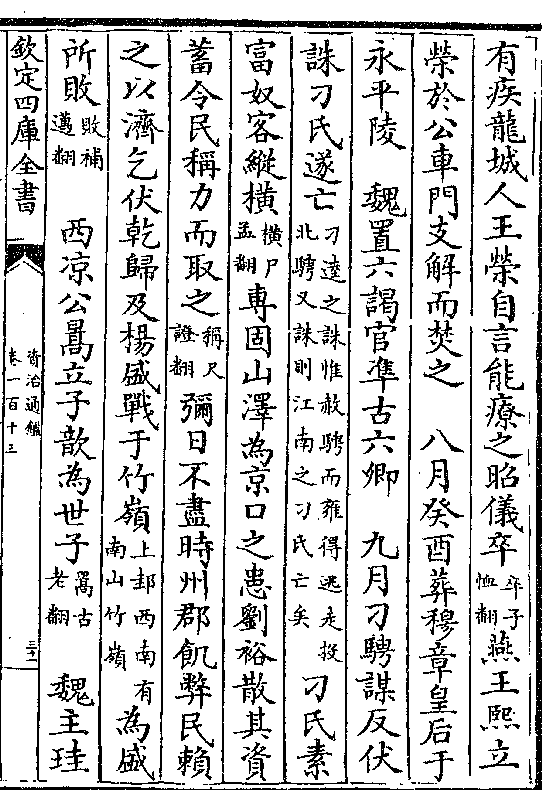 有疾龍城人王榮自言能療之昭儀卒卒子恤翻燕王熙立
榮於公車門支解而焚之　八月癸酉葬穆章皇后于
永平陵　魏置六謁官準古六卿　九月刁騁謀反伏
誅刁氏遂亡刁逵之誅惟赦騁而雍得逃走投北騁又誅則江南之刁氏亡矣刁氏素
富奴客縱横横户孟翻専固山澤為京口之患劉裕散其資
蓄令民稱力而取之稱尺證翻彌日不盡時州郡飢弊民賴
之以濟乞伏乾歸及楊盛戰于竹嶺上邽西南有南山竹嶺為盛
所敗敗補邁翻　西凉公暠立子歆為世子暠古老翻　魏主珪
欽定四庫全書
資治通鑑
卷一百十三
三十二